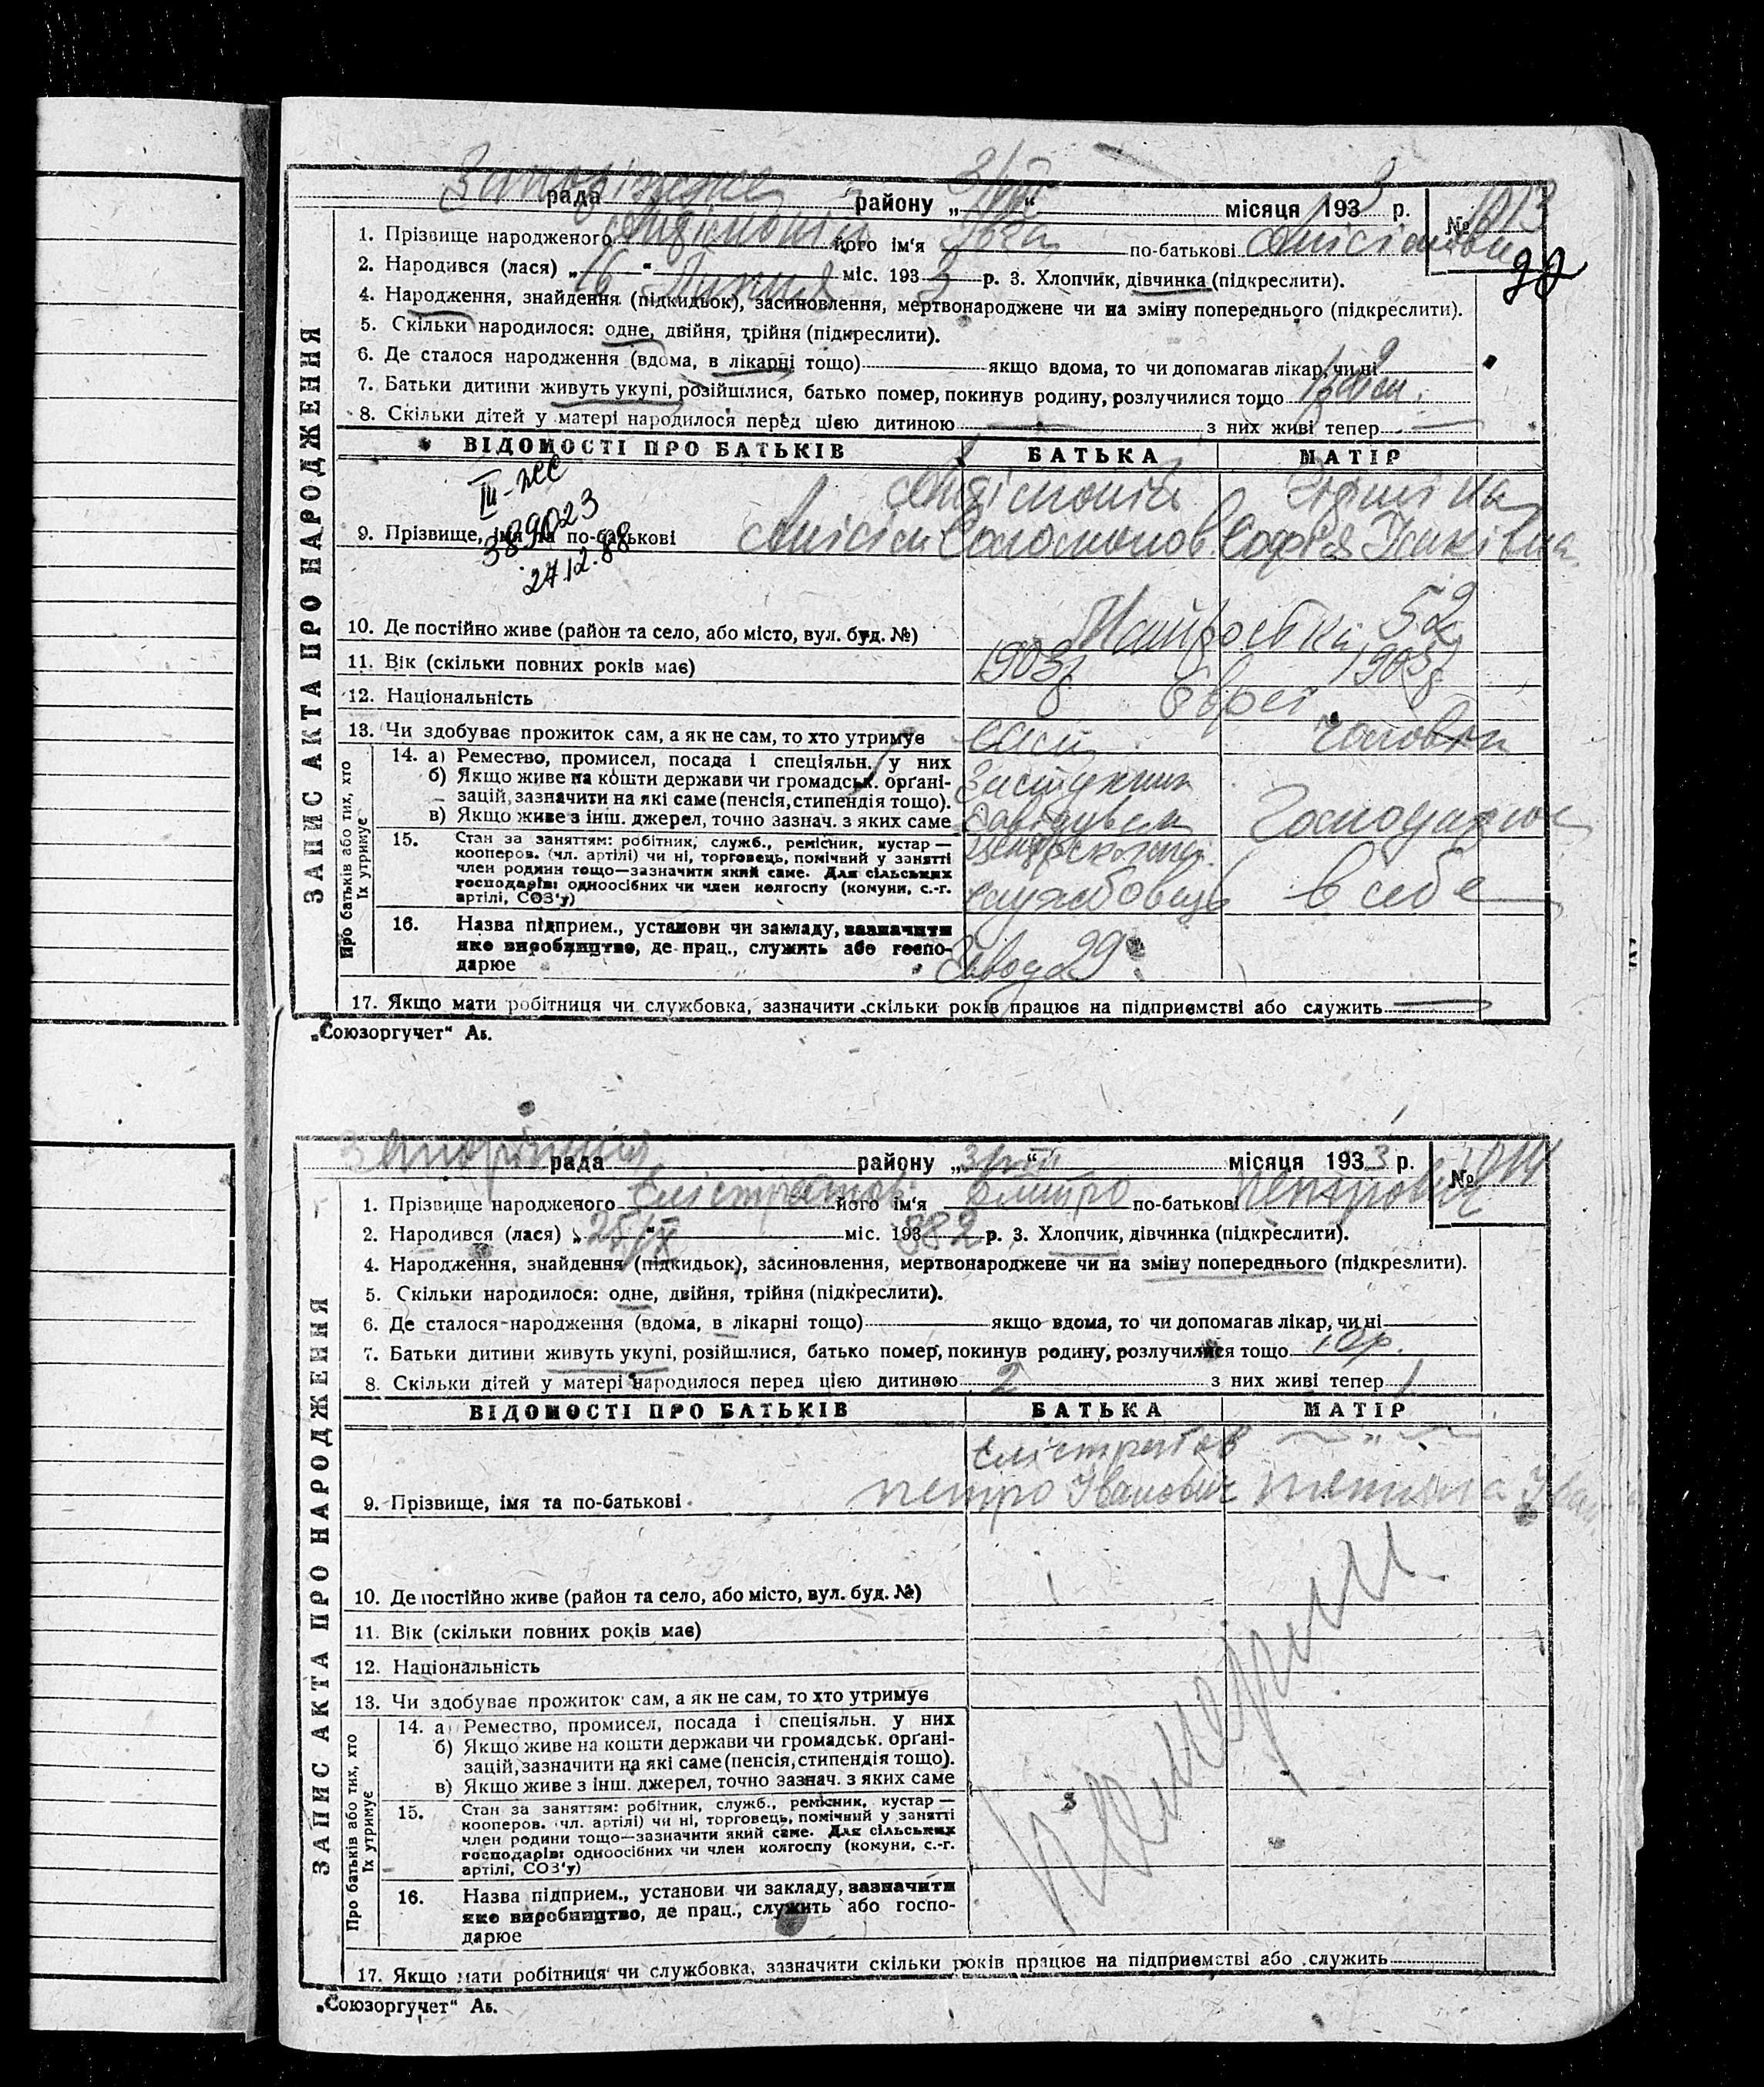 рада району „3/VIII“ місяця 1933 р. №
1. Прізвище народженого його ім'я по-батькові
2. Народився (лася) „16“ Липня міс. 1933 р. 3. Хлопчик, дівчинка (підкреслити).
4. Народження, знайдення (підкидьок), засиновлення, мертвонароджене чи на зміну попереднього (підкреслити).
5. Скільки народилося: одне, двійня, трійня (підкреслити).
6. Де сталося народження (вдома, в лікарні тощо) якщо вдома, то чи допомагав лікар, чи ні
7. Батьки дитини живуть укупі, розійшлися, батько помер, покинув родину, розлучилися тощо
8. Скільки дітей у матері народилося перед цією дитиною з них живі тепер
ЗАПИС АКТА ПРО НАРОДЖЕННЯ
ВІДОМОСТІ ПРО БАТЬКІВ БАТЬКА МАТІР
III-ЖС
389023
27.12.88
9. Прізвище, імя та по-батькові Соломонов. Софія
10. Де постійно живе (район та село, або місто, вул. буд. №) 52
11. Вік (скільки повних років має) 1903р 1905р
12. Національність Євреї
13. Чи здобуває прожиток сам, а як не сам, то хто утримує сам чоловік
Про батьків або тих, хто їх утримує
14. а) Ремество, промисел, посада і спеціяльн. у них
б) Якщо живе на кошти держави чи громадськ. орґані-
зацій, зазначити на які саме (пенсія, стипендія тощо).
в) Якщо живе з інш. джерел, точно зазнач. з яких саме
15. Стан за заняттям: робітник, служб., ремісник, кустар —
кооперов. (чл. артілі) чи ні, торговець, помічний у занятті
член родини тощо—зазначити який саме. Для сільських
господарів: одноосібних чи член колгоспу (комуни, с.-г.
артілі, СОЗ'у)
службовець в себе
16. Назва підприєм., установи чи закладу, зазначити
яке виробництво, де прац., служить або госпо-
дарює
Завод 29
17. Якщо мати робітниця чи службовка, зазначити скільки років працює на підприємстві або служить
„Союзоргучет“ Аб.
рада району „3/VIII“ місяця 1933 р. № 1014
1. Прізвище народженого Єлістратов його ім'я Дмитро по-батькові Петрович
2. Народився (лася) „25/IX“ міс. 193 932 р. 3. Хлопчик, дівчинка (підкреслити).
4. Народження, знайдення (підкидьок), засиновлення, мертвонароджене чи на зміну попереднього (підкреслити).
5. Скільки народилося: одне, двійня, трійня (підкреслити).
6. Де сталося народження (вдома, в лікарні тощо) якщо вдома, то чи допомагав лікар, чи ні
7. Батьки дитини живуть укупі, розійшлися, батько помер, покинув родину, розлучилися тощо 10р.
8. Скільки дітей у матері народилося перед цією дитиною 2 з них живі тепер 1
ЗАПИС АКТА ПРО НАРОДЖЕННЯ
ВІДОМОСТІ ПРО БАТЬКІВ БАТЬКА МАТІР
Єлістратов — „ —
9. Прізвище, імя та по-батькові Петро Іванович Тетяна
10. Де постійно живе (район та село, або місто, вул. буд. №)
11. Вік (скільки повних років має)
12. Національність
13. Чи здобуває прожиток сам, а як не сам, то хто утримує
Про батьків або тих, хто їх утримує
14. а) Ремество, промисел, посада і спеціяльн. у них
б) Якщо живе на кошти держави чи громадськ. орґані-
зацій, зазначити на які саме (пенсія, стипендія тощо).
в) Якщо живе з інш. джерел, точно зазнач. з яких саме
15. Стан за заняттям: робітник, служб., ремісник, кустар —
кооперов. (чл. артілі) чи ні, торговець, помічний у занятті
член родини тощо—зазначити який саме. Для сільських
господарів: одноосібних чи член колгоспу (комуни, с.-г.
артілі, СОЗ'у)
16. Назва підприєм., установи чи закладу, зазначити
яке виробництво, де прац., служить або госпо-
дарює
17. Якщо мати робітниця чи службовка, зазначити скільки років працює на підприємстві або служить
„Союзоргучет“ Аб.